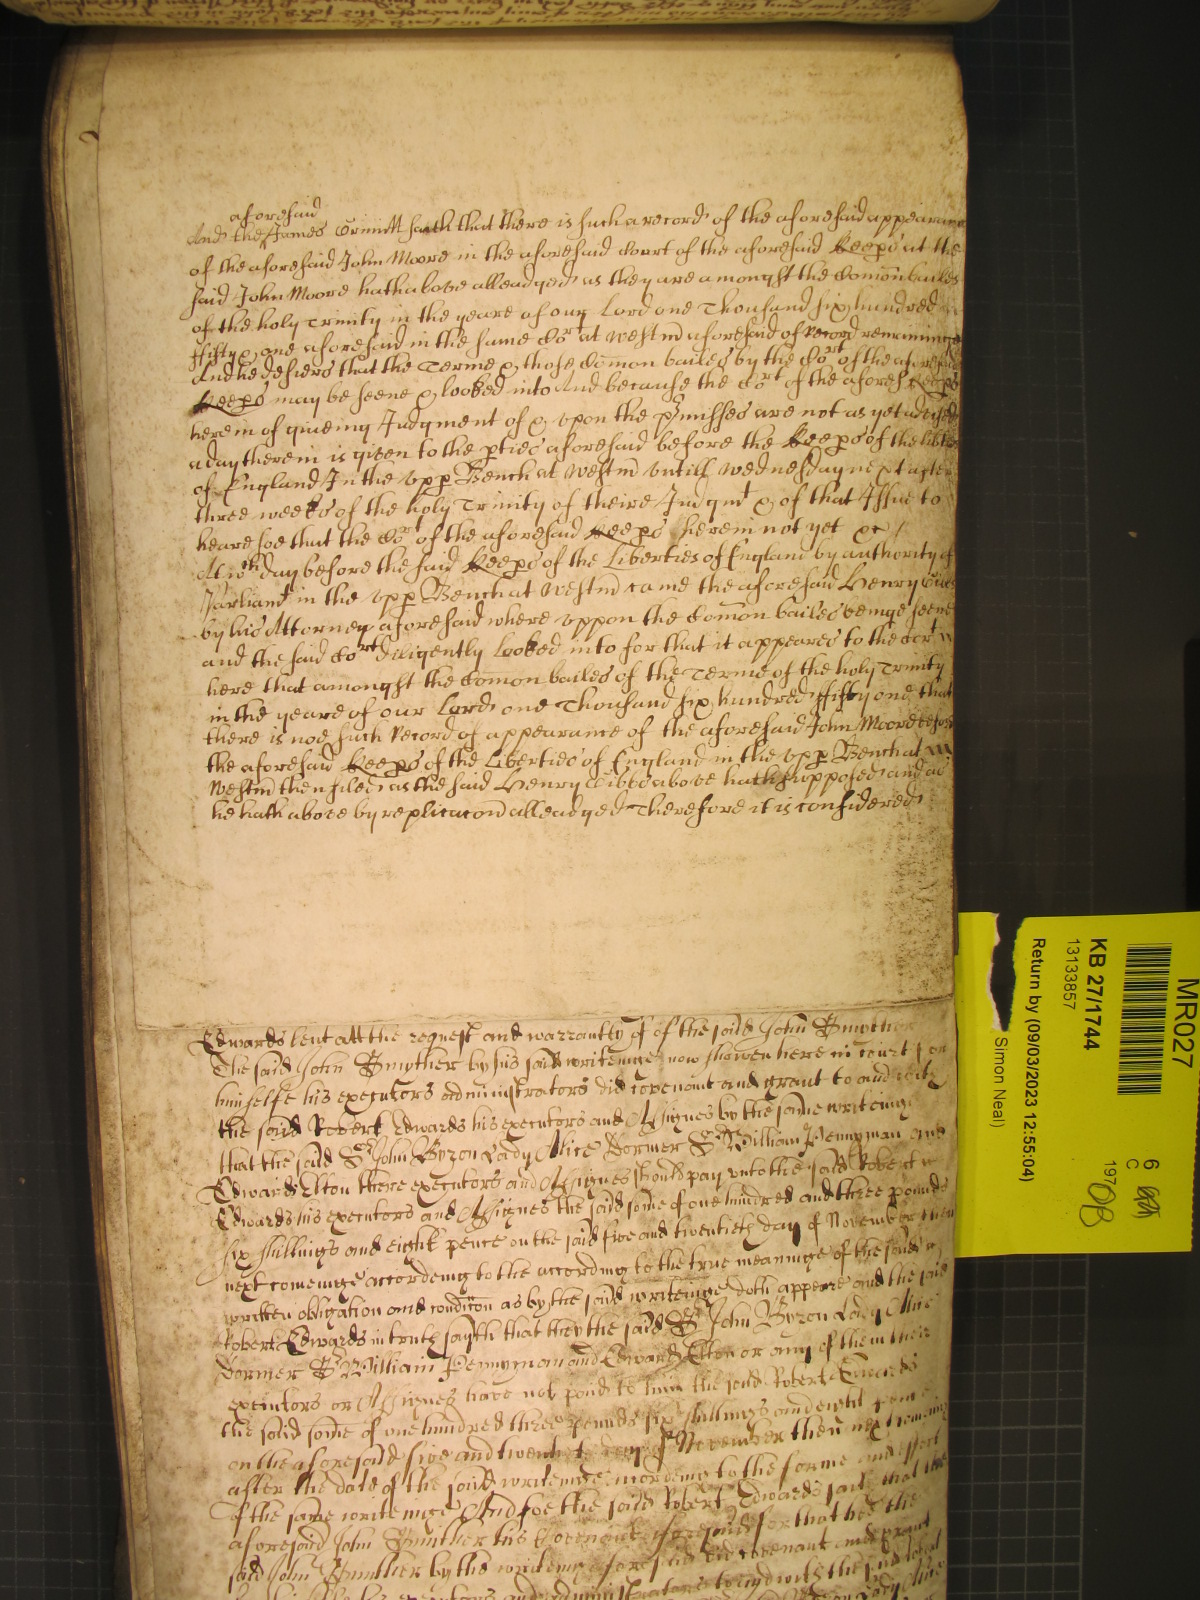 aforesaid
And the James saith that there is such a record of the aforesaid appearan
of the aforesaid John Moore in the aforesaid Court of the aforesaid Keeps at the
said John Moore hath above alleadged as they are amongst the Comon bailes
of the holy Trinity in the yeare of our Lord one Thousand six hundred
ffifty & one aforesaid in the same Cort at Westm aforesaid of Record remaininge
And he desiers that the Terme & those Comon bailes by the Cort of the aforesaid
Keeps may be seene & looked into And because the Cort of the aforesd Keeps
herein of giueing Judgment of & vpon the pmisses are not as yet advised
a day therein is given to the pties aforesaid before the Keeps of the liberties
of England In the vpp Bench at Westm vntill Wednesday next after
three weeks of the holy Trinity of theire Judgmt & of that Issue to
heare foe that the Cort of the aforesaid Keeps herein not yet &c
At wch day before the said Keeps of the Liberties of England by authority of
Parliamt in the vpp Bench at Westm came the aforesaid Henry
by his Attorney aforesaid where vppon the Comon bailes beinge seene
and the said Cort diligently looked into for that it appeares to the Cort
here that amongst the Comon bailes of the Terme of the holy Trinity
in the yeare of our Lord one Thousand six hundred ffifty one that
there is noe such Record of appearance of the aforesaid John Moore before
the aforesaid Keeps of the Liberties of England in the vpp Bench at
Westm then filed as the said Henry Gibbs above hath supposed and as
he hath above by replicacon alleadged Therefore it is considered
Edwards lent att the request and warrantty of of the said John Smither
The said John Smyther by his said writeinge now shewen here in Court for
himselfe his executors administrators did covenant and grant to and with
the said Robert Edwards his executors and Assignes by the same writeing
that the said Sr John Byron Lady Alice Dormer Sr William Pennyman and
Edward Elton there executors and Assignes should pay vnto the said Robert
Edwards his executors and Assignes the said some of one hundred and three pounds
six shillings and eight pence on the said five and twentieth day of November then
next comeinge accordeing to the according to the true meaninge of the said
written obligation and condicon as by the said writeinge doth appeare and the said
Robert Edwards in truth sayth that they the said Sr John Byron Lady Alice
Dormer Sr William Pennyman and Edward Elton or any of them their
executors or Assignes have not paid to him the said Robert Edwards
the said some of one hundred three pounds six shillings and eight pence
on the aforesaid five and twentieth day of November then next comeing
after the date of the said writeinge accordeing to the forme and effect
of the same writeinge And soe the said Robert Edwards saith that the
aforesaid John Smither his Covenant aforesaid for that hee the
said John Smither by the writeing aforesaid did covenant and grant
executors and administrators to and with the said Robert
MR027
6
C
1970B
KB 27/1744
13133857
Return by (09/03/2023 12:55:04)
Simon Neal)